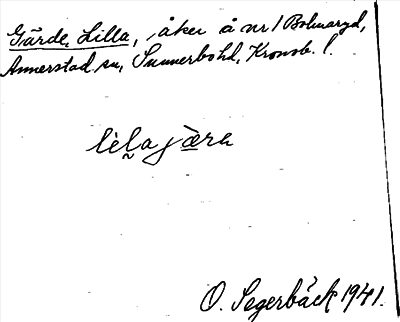 Gärde, Lilla, åker å nr 1 Bolmaryd,
Annerstad sn, Sunnerbo hd, Kronob. l.
lìl̰a jæ̀ra
O. Segerbäck 1941.